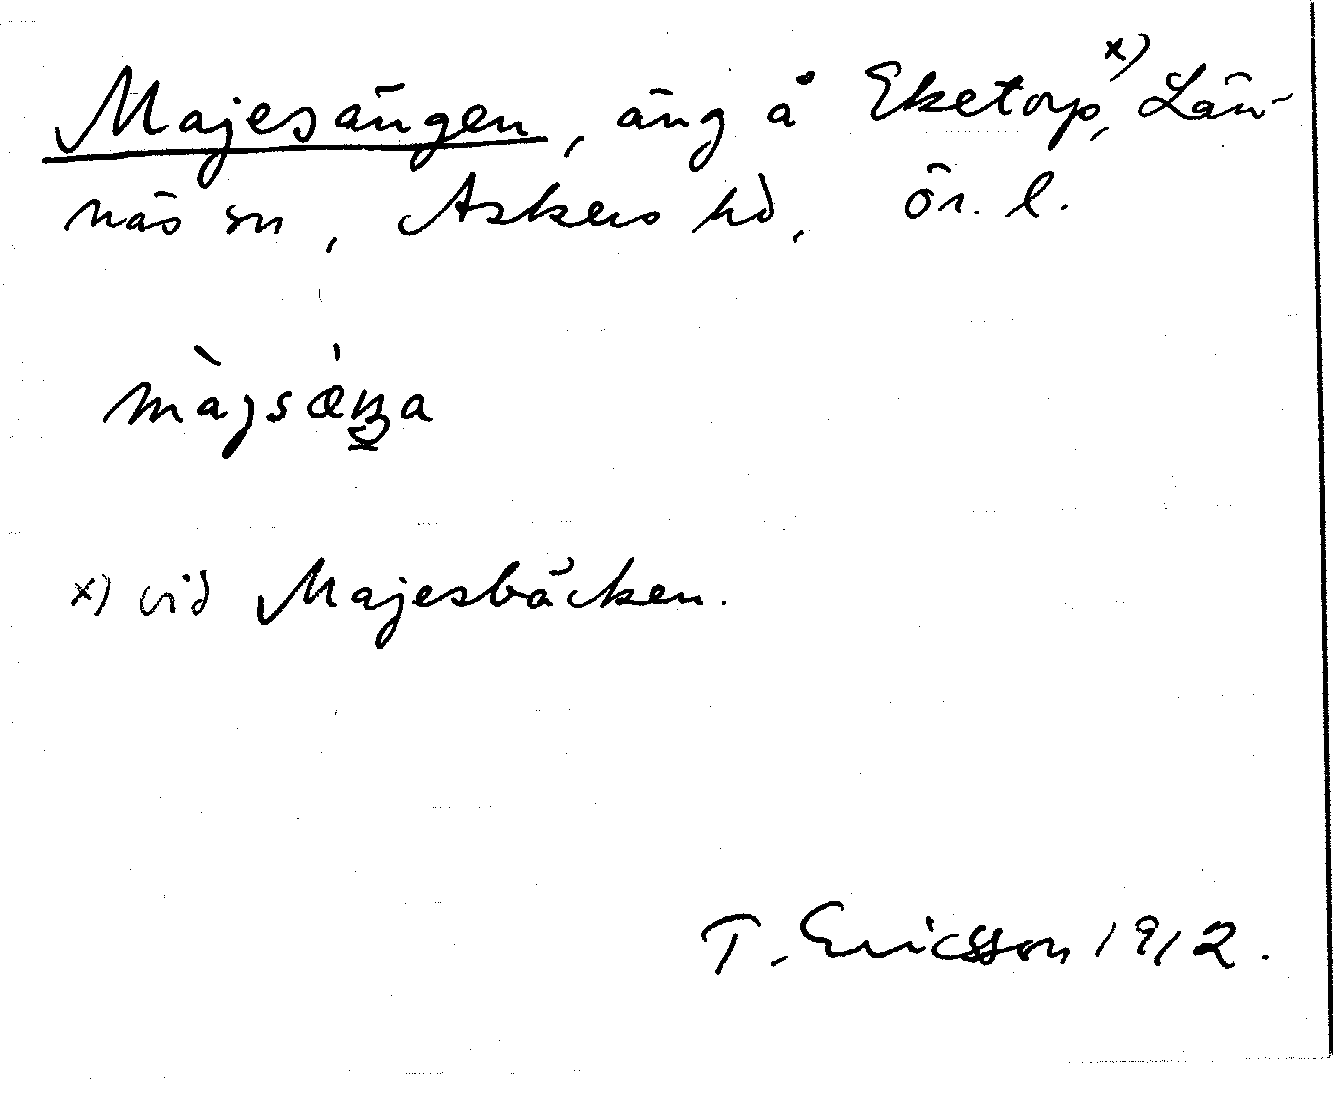 Majesängen, äng å Eketorp,x) Län-
näs sn, Askers hd, Ör. l.
màjsæ̀ŋa
x) vid Majesbäcken.
T. Ericsson 1912.